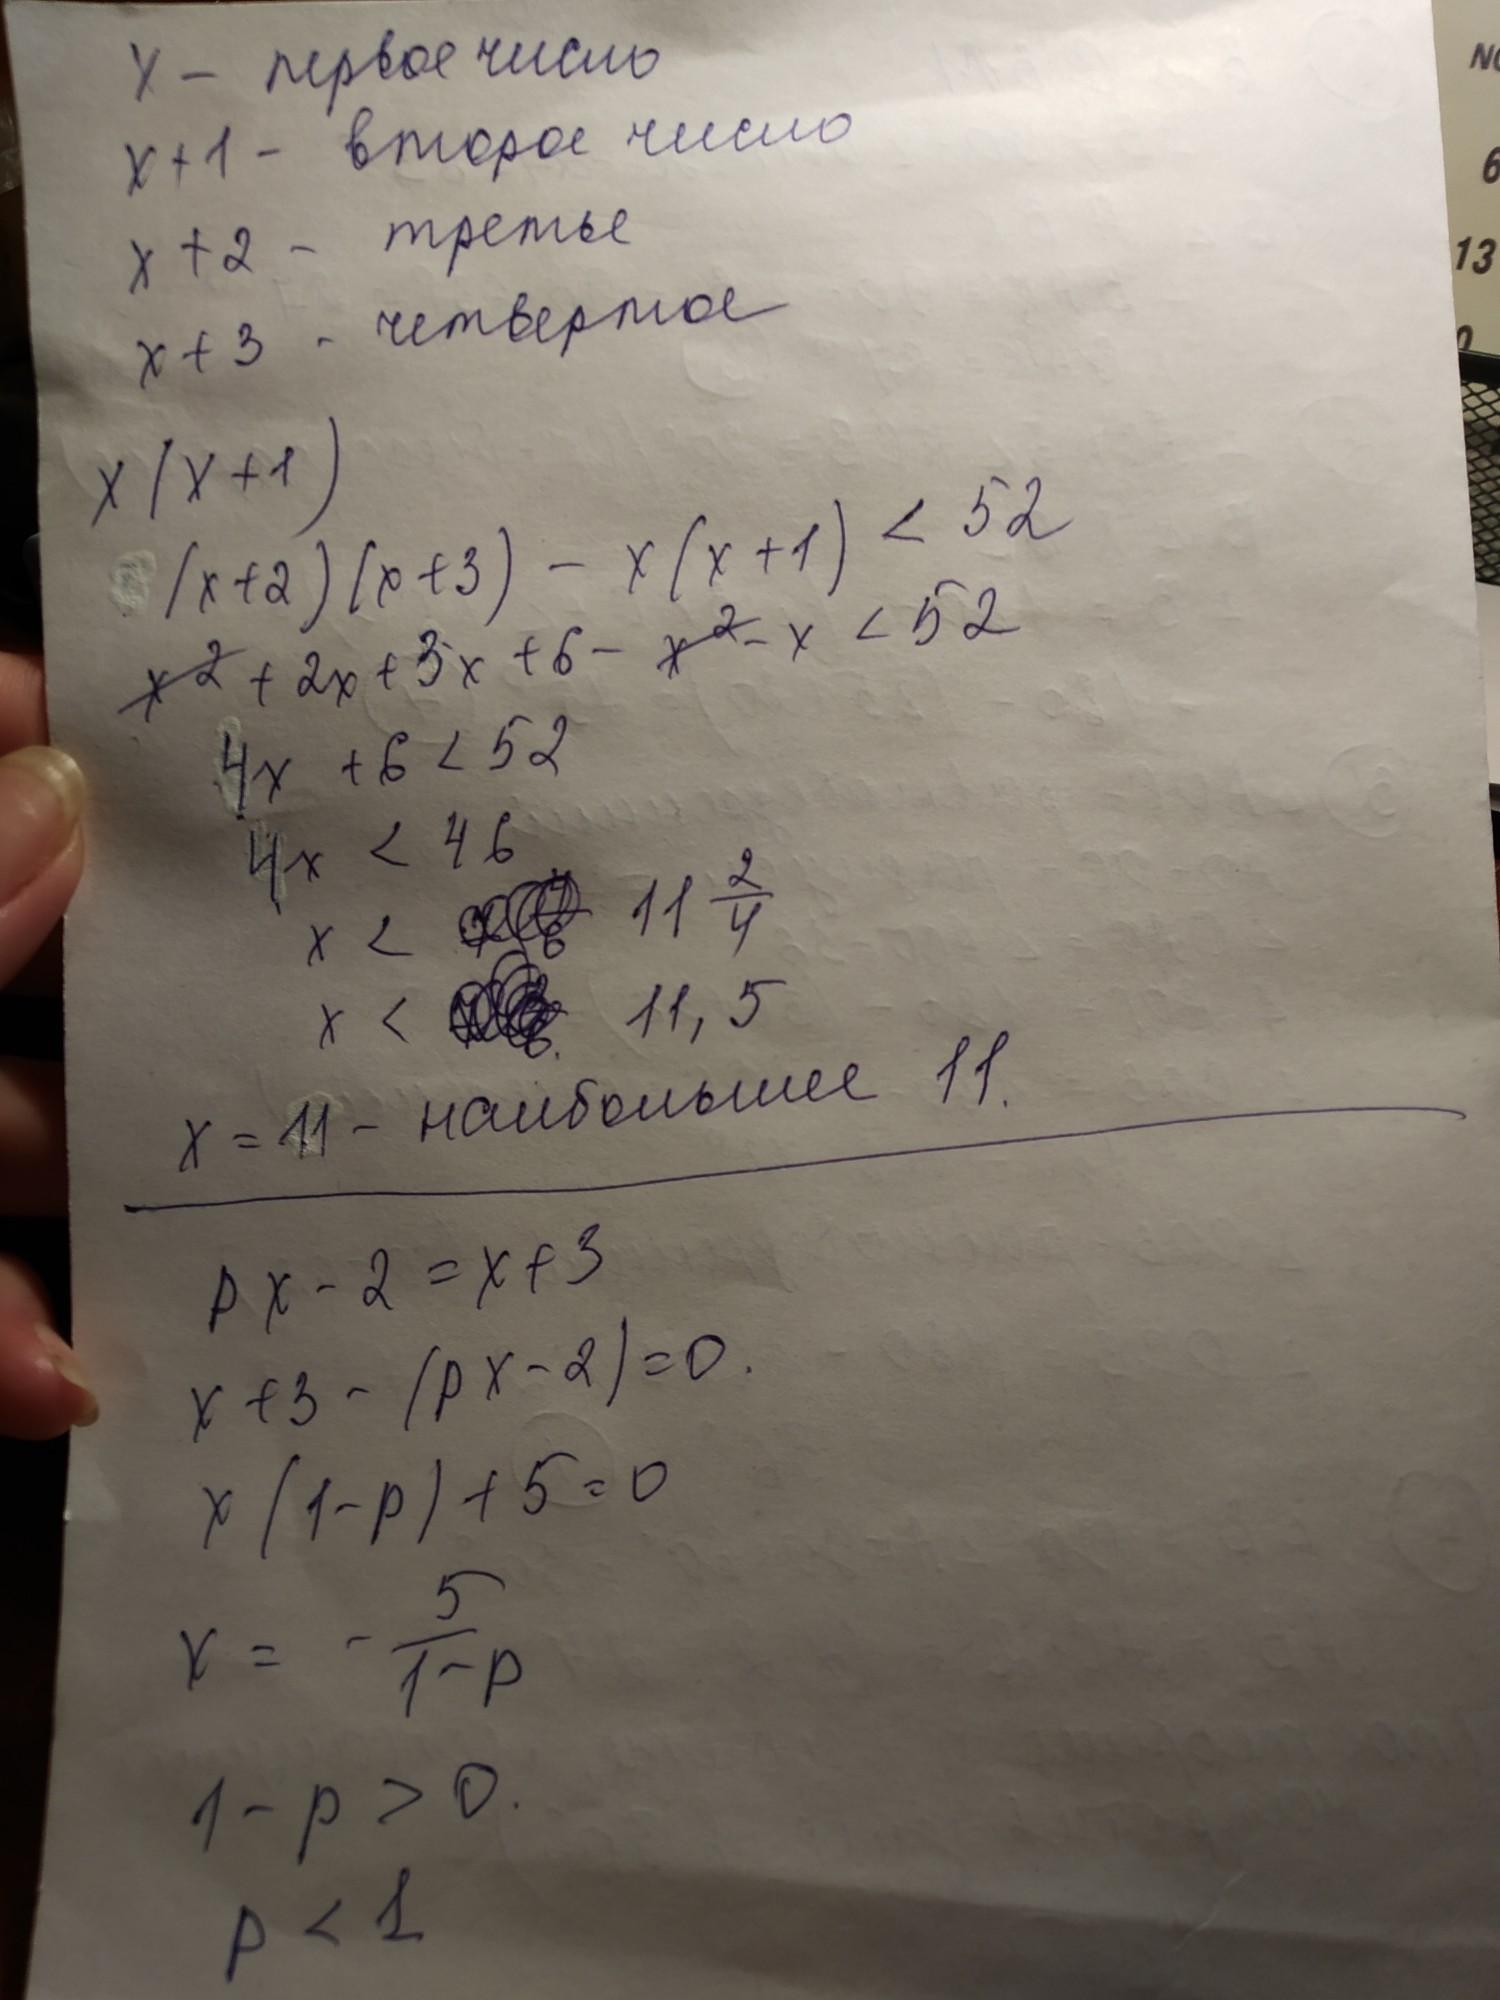 x – первое число
x+1 – второе число
x+2 – третье
x+3 - четвертое
x(x+1)
(x+2)(x+3) – x(x+1) < 52
x² + 2x + 3x + 6 – x² - x < 52
4x + 6 < 52
4x < 46
x < 11 2/4
x < 11,5
x = 11 – наибольшее 11.
px - 2 = x+3
x+3 - (px-2) = 0.
x(1-p)+5=0
x = - 5/(1-p)
1-p > 0.
p < 1
NO
6
13